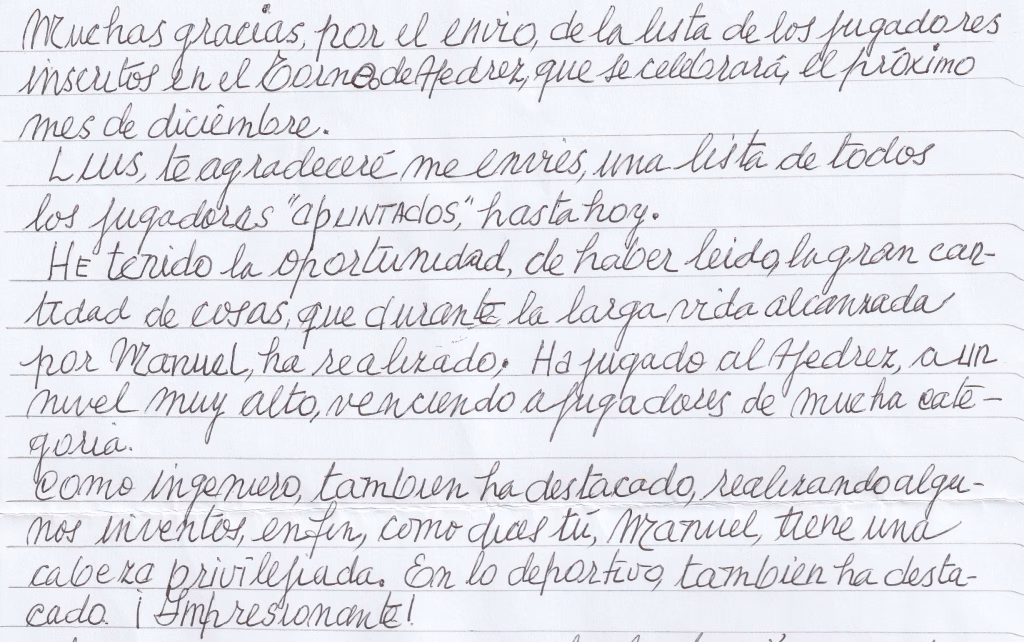 Muchas gracias, por el envio, de la lista de los jugadores
inscritos en el Torneo de Ajedrez, que se celebrará, el próximo
mes de diciembre.
Luis, te agradeceré me envies, una lista de todos
los jugadores "apuntados," hasta hoy.
He tenido la oportunidad, de haber leido, la gran can-
tidad de cosas, que durante la larga vida alcanzada
por Manuel, ha realizado. Ha jugado al Ajedrez, a un
nivel muy alto, venciendo a jugadores de mucha cate-
goria.
Como ingeniero, tambien ha destacado, realizando algu-
nos inventos, en fin, como dices tú, Manuel, tiene una
cabeza privilejiada. En lo deportivo, tambien ha desta-
cado. ¡Impresionante!